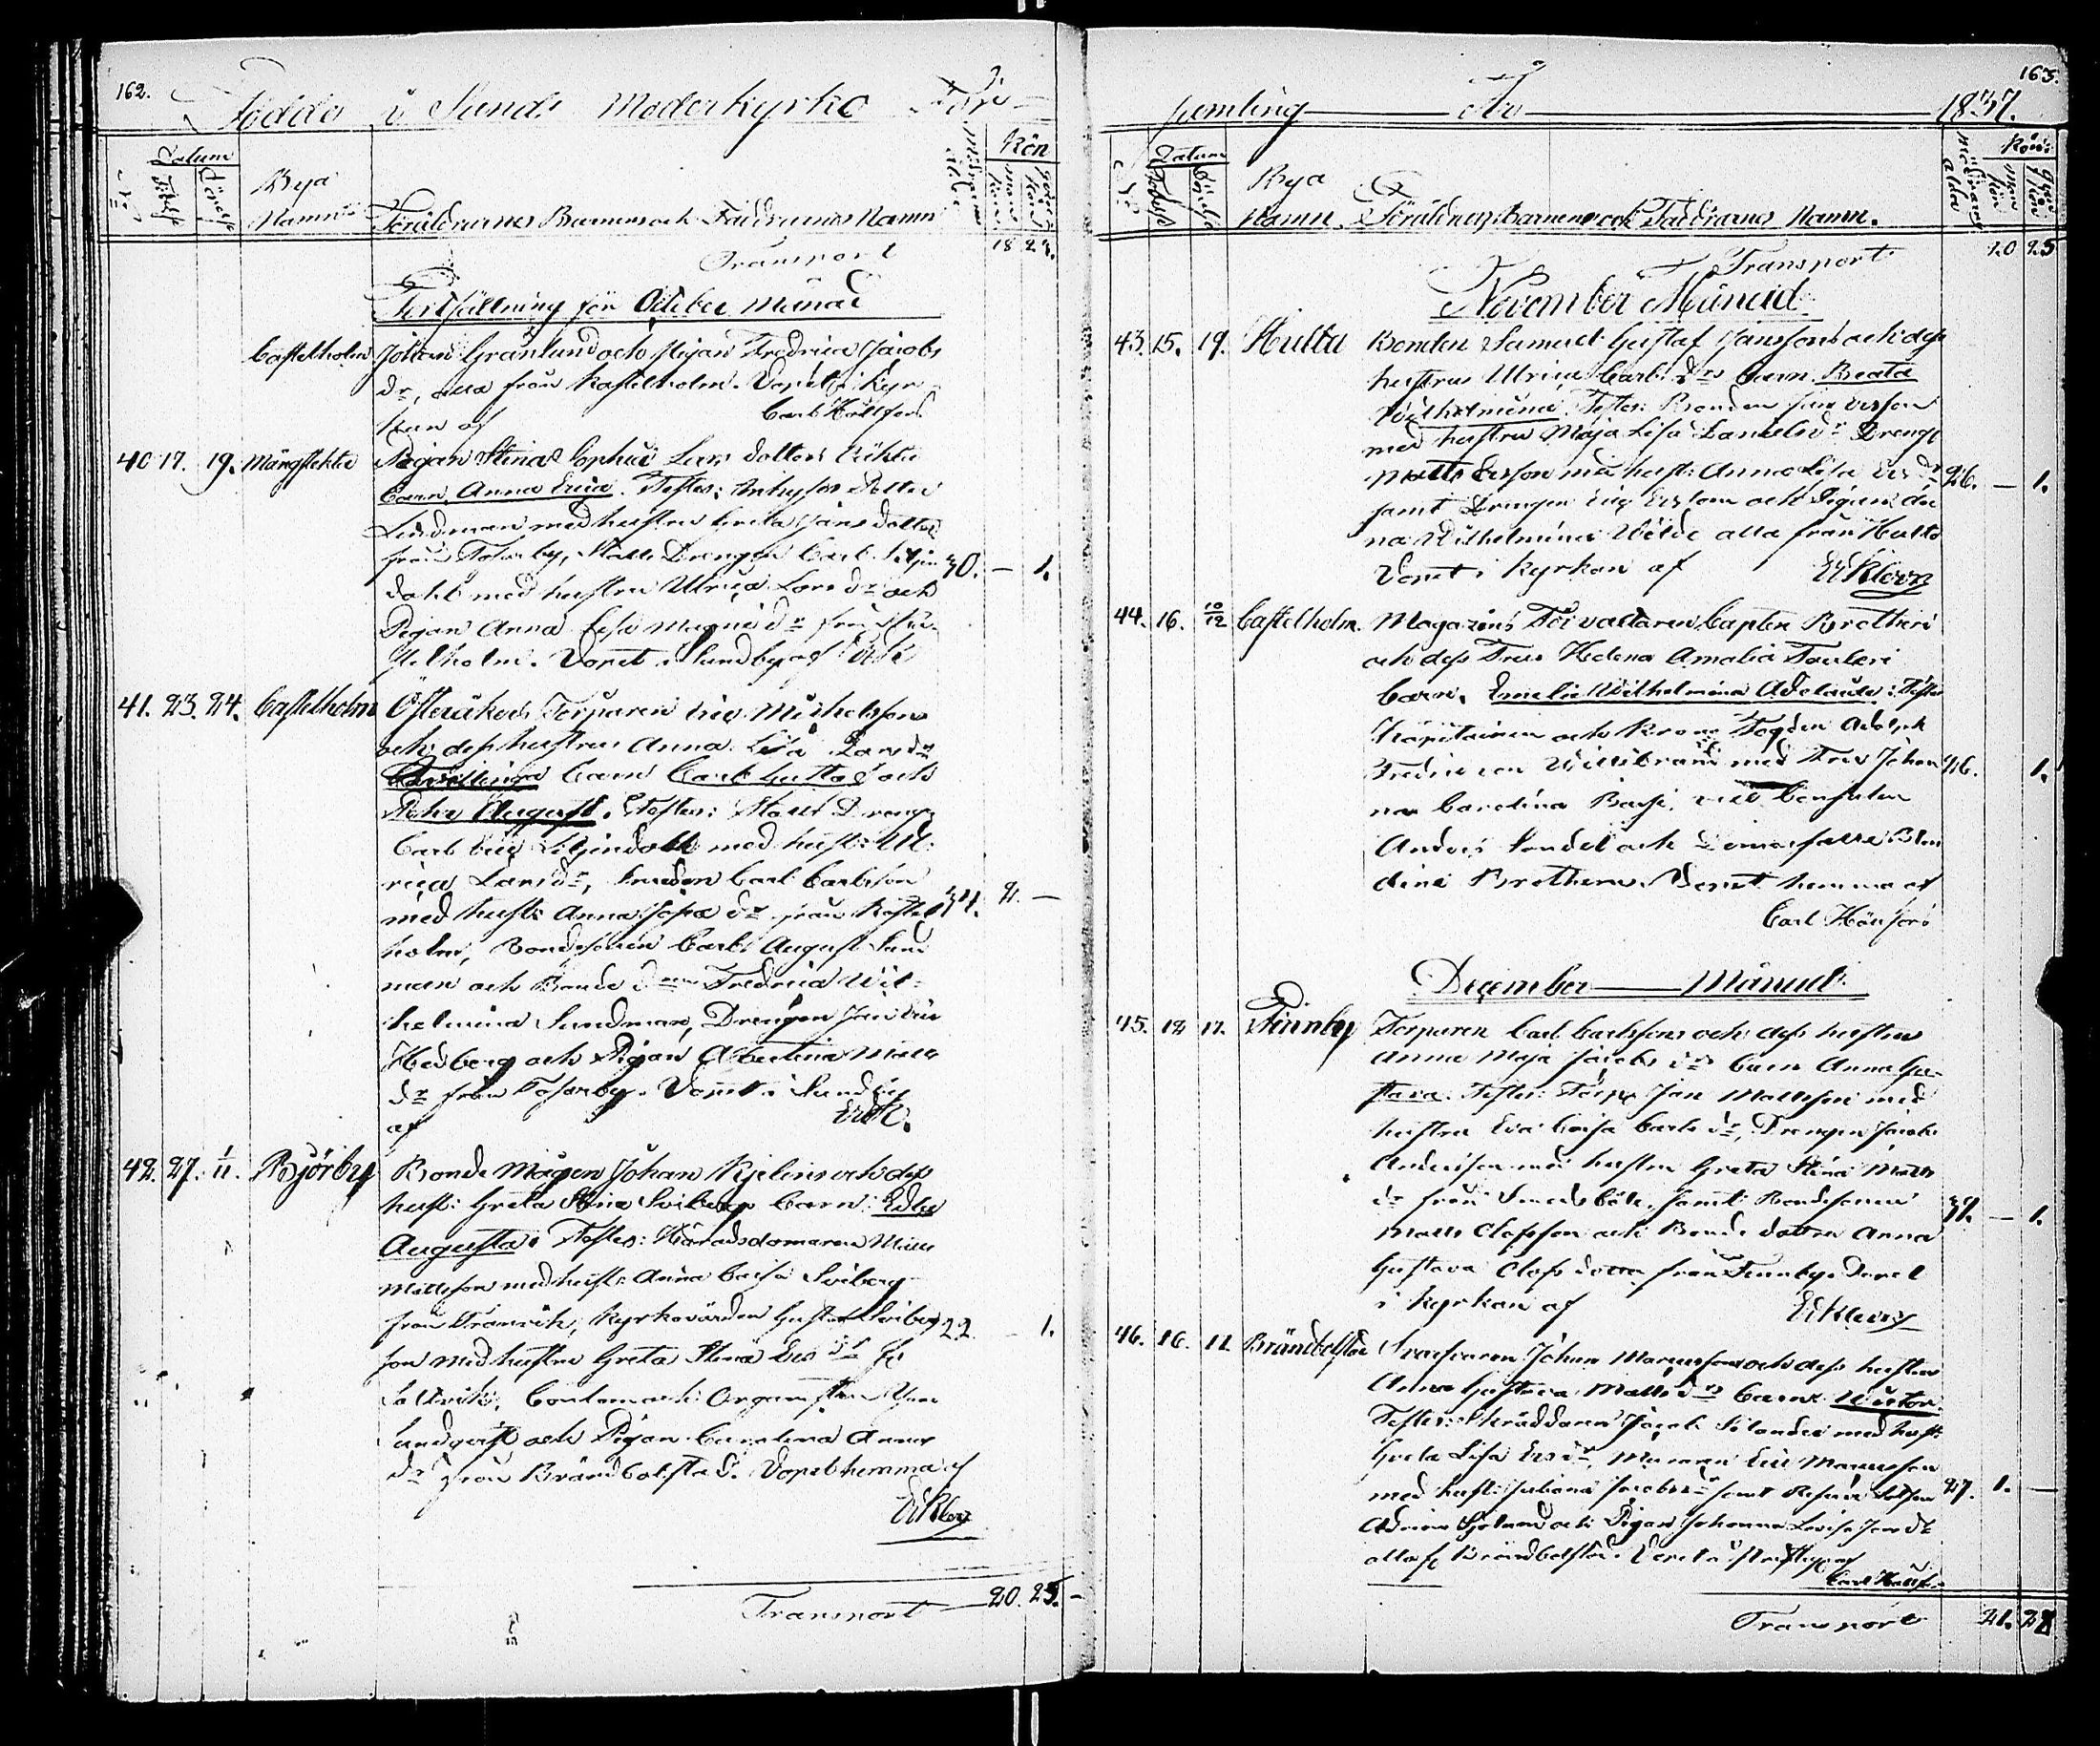 162.
Födde i Sunds Moderkyrko För-
No
Datum
Födelse
Döpelse
Bya
Namn
Föräldrarnes Barnens och Faddrarnes Namn
Mödrarnas ålder
Kön
Mankön
Qvinkön
Transport 18 23.
Fortsättning för October Månad
Castelholm Johan Granlund och Pigan Fredrica Jacobs
dr, alla från Kastelholm. Döpt i Kyr
kan af Carl Hällfors
40 17. 19. Mångstekta Pigan Stina Sophia Lars dotters oäkta
Barn Anna Erica. Testes: Inhyses
Lindman med hustru Greta Jans dotter
från Tosarby, Stalls Drengen Carl Liljen 30. — 1.
dahl med hustru Ulrica Lars dr och
Pigan Anna Lisa Magnus dr från Ka-
stelholm. Döpt i Sundby af
41. 23. 24. Castelholm Österåkers Torparen Eric Michelsson
och dess hustru Anna Lisa Lars drs
Tvillinge barn Carl Gustaf och
John August. Testes: Stalls Dreng
Carl Eric Liljendahl med hust: Ul-
rica Lars dr, Smeden Carl Carlsson
med hust: Anna Josa dr från Kastel 34. 2. —
holm, Bondesonen Carl August Sund
man och Bonde dren Fredrica Wil-
helmina Sundman, Drengen Jan Eric
Hedberg och Pigan Albertina Matts
dr från Tosarby. Döpt i Sundby
af
42. 27. 1/11. Björby Bonde Mågen Johan Kjelin och dess
hust: Greta Stina Sviberg barn: Edla
Augusta. Testes: Häradsdomaren Matts
Mattsson med hust: Anna Caisa Sviberg
från Tranvik, Kyrkovärden Gustaf Sviberg 22. — 1.
son med hustru Greta Stina Ers dr fr.
Saltvik, Cantorn och Organisten
Lundqvist och Pigan Carolina Anders
dr från Brändbolstad. Döpt hemma af
Transport 20. 25.
163.
samling År 1837.
No
Datum
Födelse
Döpelse
Bya
Namn.
Föräldrarnes Barnens och Faddrarnes Namn.
Mödrarnas ålder
Kön
Mankön
Qvinkön
Transport 20 25
November Månad
43. 15. 19. Hulta Bonden Samuel Gustaf Jansson och dess
hustrus Ulrica Carls drs barn Beata
Wilhelmina. Testes: Bonden Jan Ersson
med hustru Maja Lisa Daniels dr Drengen
Matts Ersson med hust: Anna Lisa Ers dr 26. — 1.
samt Drengen Eric Ersson och Pigan
na Wilhelmina Wilde alla från Hulta
Döpt i kyrkan af
44. 16. 10/12 Castelholm. Magazins Förvaltaren Capten Brotherus
och dess Frus Hedena Amalia
barn. Emelie Wilhelmina Adelaide: Testes
Kapitainen och Krono Fogden Adolph
Fredric von Willebrand med Fru Johan 26. 1.
na Carolina
Anders Sundel och Demoiselle Blon
dina Brotherus. Döpt hemma af
Carl Hällfors
December Månad:
45. 12 17. Finnby Torparen Carl Carlsson och dess hustru
Anna Maja Jacobs drs barn Anna Gu-
stava. Testes: Torp. Jan Mattsson med
hustru Eva Caisa Carls dr, Drengen Jacob
Andersson med hustru Greta Stina Matts
dr från Smedsböle, samt Bondesonen
Matts Olofsson och Bonde dottren Anna 31. — 1.
Gustava Olofs dotter från Finnby. Döpt
i Kyrkan af
46. 16. 11. Brändbolstad Svarfvaren Johan Marcusson och dess hustru
Anna Gustava Matts drs barn: Wictor.
Testes: Skräddaren Jacob Selander med hust:
Greta Lisa Ers dr, Muraren Eric Marcusson
med hust: Juliana Jacobs dr samt 27. 1. —
Adrian Sjölund och Pigan Johanna Lovisa Jans dr
alla fr. Brändbolstad. Döpt
Carl Hällfors
Transport 21. 28